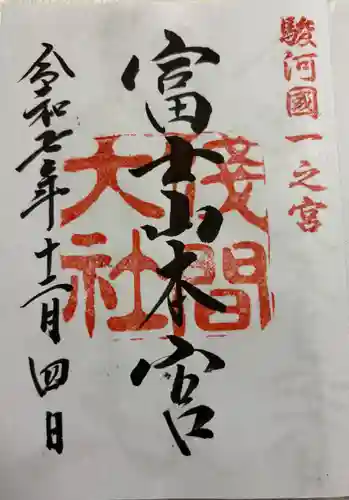 駿河國一之宮
富士山本宮
淺間大社
令和七年十二月四日